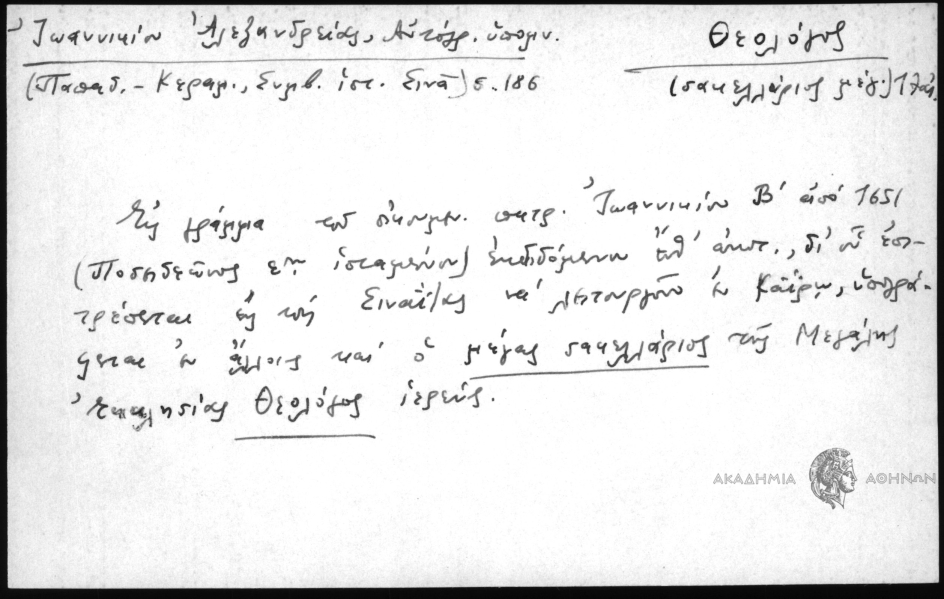 Ἰωαννικίου Ἀλεξανδρείας, Αὐτόγρ. ὑπόμν.
Θεολόγος
(Παπαδ. - Κεραμ., Συμβ. ἱστ. Σινᾶ) σ. 186
(σακελλάριος μέγ.) 17 αἰ.
Εἰς γράμμα τοῦ οἰκουμ. πατρ. Ἰωαννικίου Β΄ ἀπό 1651
(Ποσιδεῶνος ἱσταμένου) ἐκδιδόμενον δι' οὗ ἐπι-
τρέπεται εἰς τούς Σιναΐτας νά λειτουργοῦν ἐν Καΐρῳ, ὑπογρά-
φεται ἐν ἄλλοις καί ὁ μέγας σακελλάριος τῆς Μεγάλης
Ἐκκλησίας Θεολόγος ἱερεύς.
ΑΚΑΔΗΜΙΑ ΑΘΗΝΩΝ